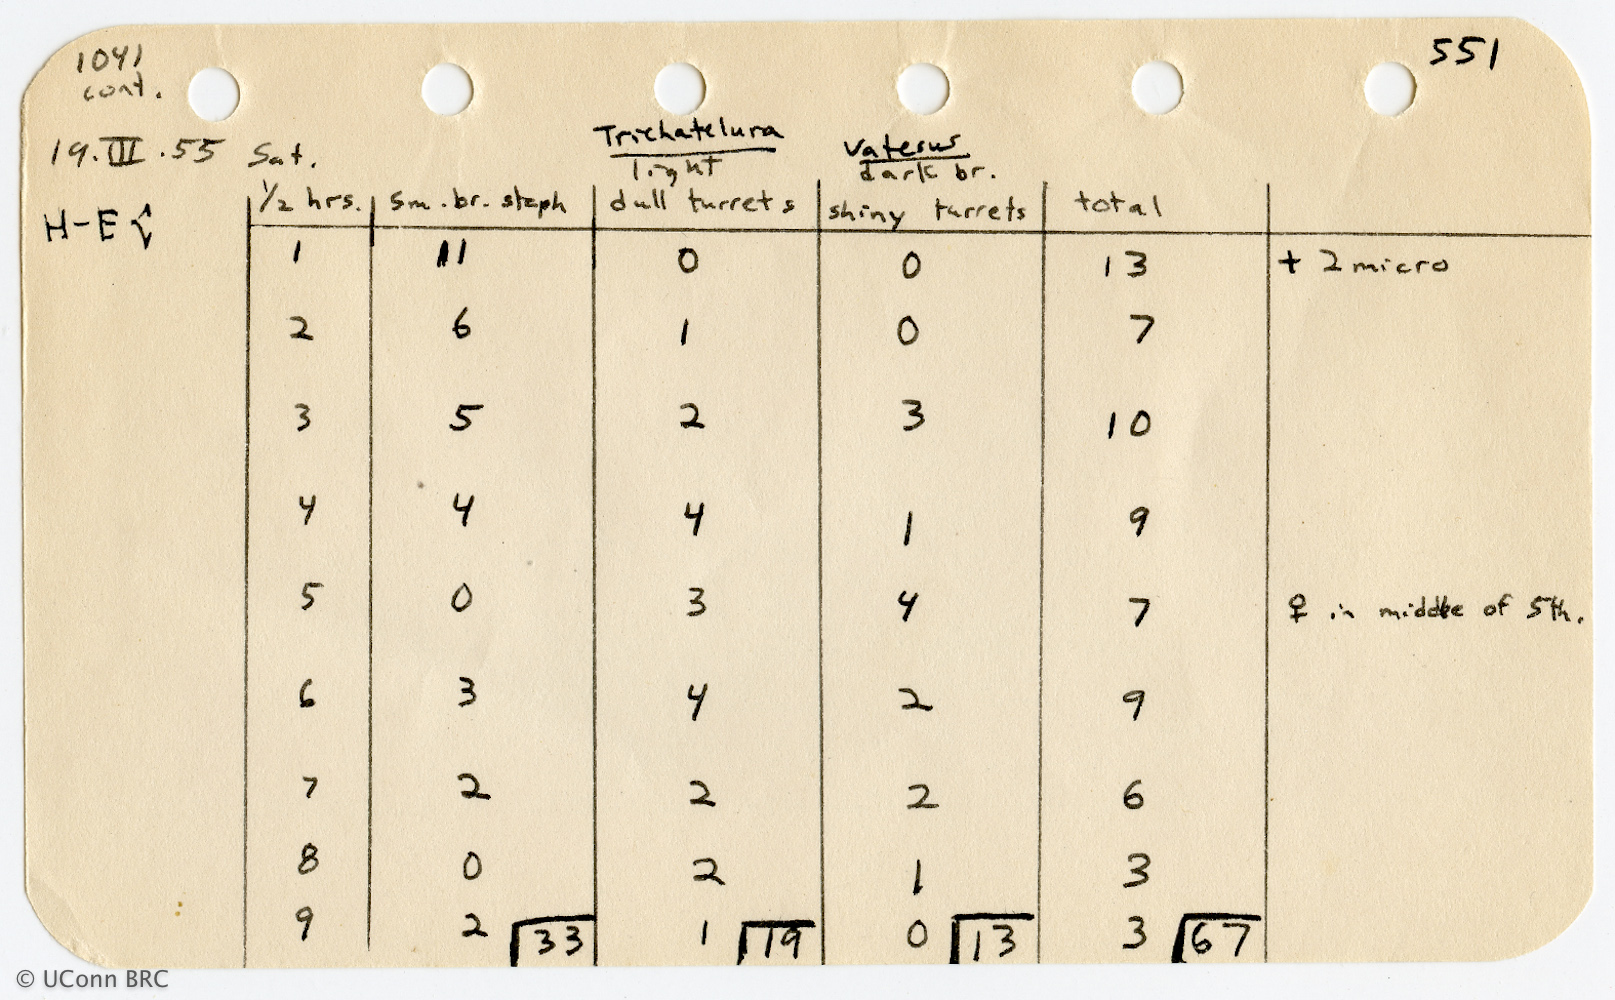 1041 551
cont.
19.III.55 Sat.
Trichatelura Vatesus
light dark br.
H-E { 1/2 hrs. sm. br. staph dull turrets shiny turrets total
1 11 0 0 13 + 2 micro
2 6 1 0 7
3 5 2 3 10
4 4 4 1 9
5 0 3 4 7 ♀ in middle of 5th.
6 3 4 2 9
7 2 2 2 6
8 0 2 1 3
9 2 33 1 19 0 13 3 67
© UConn BRC